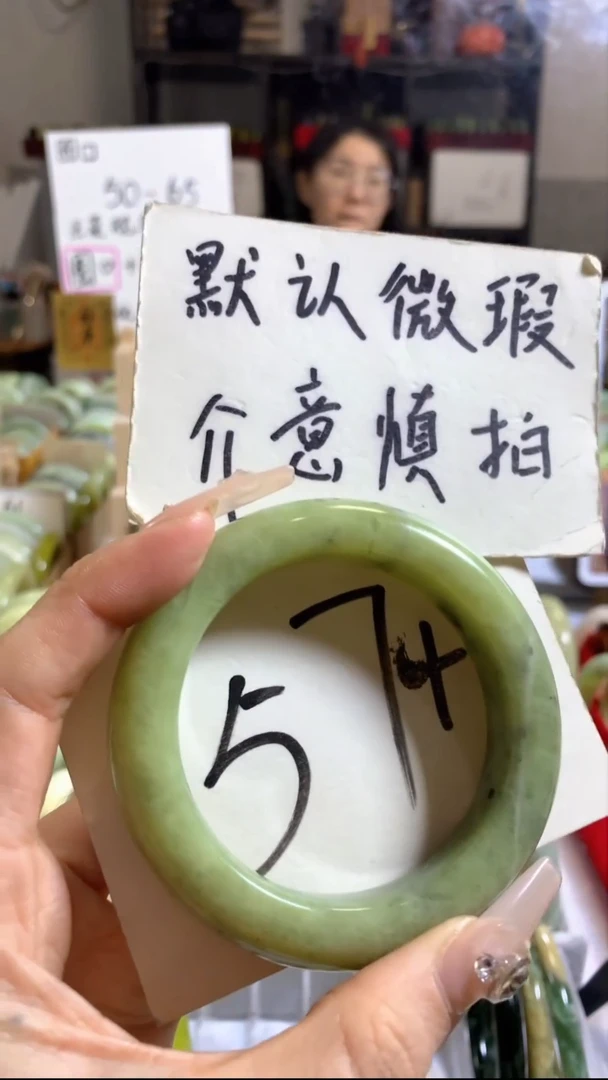 圈口
50-65
圈口
默认微瑕
介意慎拍
57+